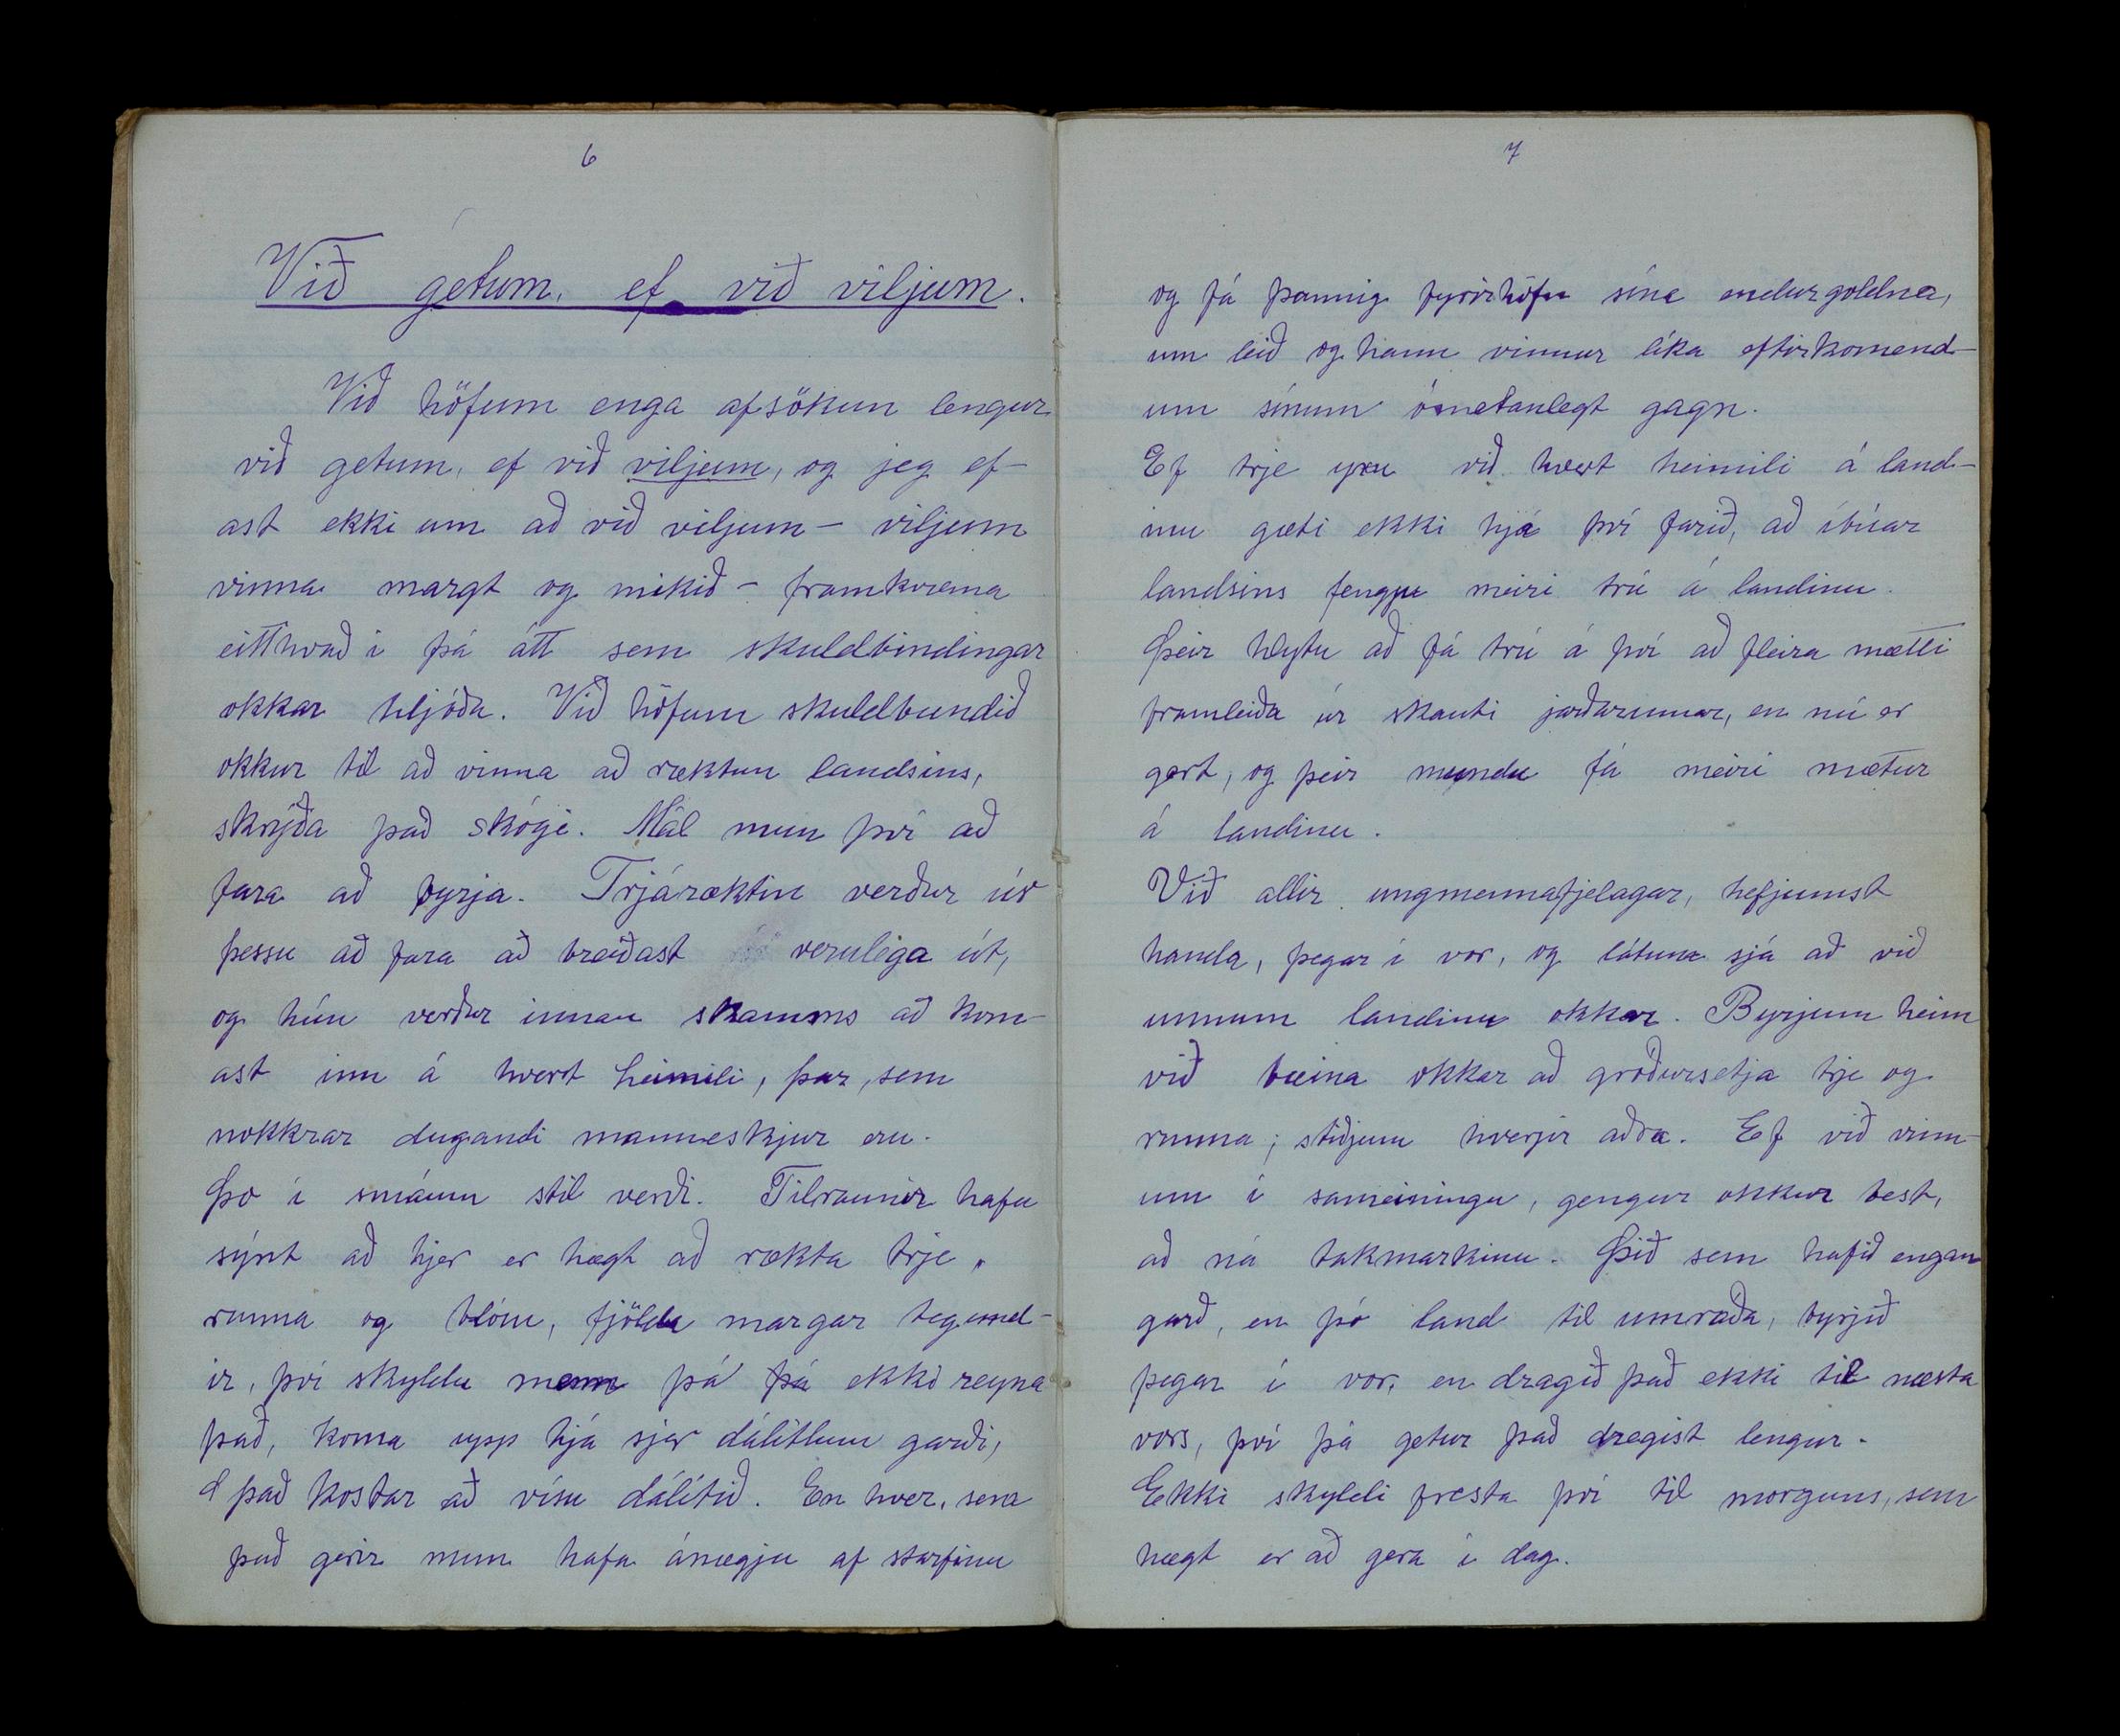 6
Við getum, ef við viljum.
Við höfum enga afsökun lengur
við getum, ef við viljum, og jeg ef-
ast ekki um að við viljum - viljum
vinna margt og mikið - framkvæma
eitthvað i þá átt sem skuldbindingar
okkar hljóða. Við höfum skuldbundið
okkur til að vinna að ræktun landsins,
skrýða það skógi. Mál mun því að
fara að byrja. Trjáræktin verður úr
þessu að fara að breiðast verulega út,
og hún verður innan skamms að kom-
ast inn á hvert heimili, þar, sem
nokkrar dugandi manneskjur eru.
Þo i smáum stil verði. Tilraunir hafa
sýnt að hjer er hægt að rækta trje,
runna og blóm, fjölda margar tegund-
ir, því skyldu menn þá þá ekki reyna
það, koma upp hjá sjer dálitlum garði,
það kostar að vísu dálítið. En hver, sem
það gerir mun hafa ánægju af starfinu
7
og fá þannig fyrirhöfn sína endurgoldna,
um leið og hann vinnur líka eftirkomend-
um sínum ómetanlegt gagn.
Ef trje yxu við hvert heimili á land-
inu gæti ekki hjá því farið, að íbúar
landsins fengju meiri trú á landinu.
Þeir hlytu að fá trú á því að fleira mætti
framleiða úr skauti jarðarinnar, en nú er
gert, og þeir mundu fá meiri mætur
á landinu.
Við allir ungmennafjelagar, hefjumst
handa, þegar í vor, og látum sjá að við
unnum landinu okkar. Byrjum heim
við bæina okkar að gróðursetja trje og
runna; stiðjum hverjir aðra. Ef við vinn-
um í sameiningu, gengur okkur best,
að ná takmarkinu. Þið sem hafið engan
garð, en þó land til umraða, byrjið
þegar í vor, en dragið það ekki til næsta
vors, því þá getur það dregist lengur.
Ekki skyldi fresta því til morguns, sem
hægt er að gera í dag.